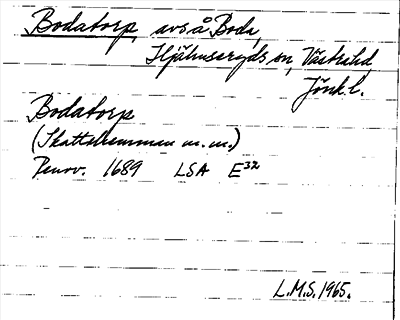 Bodatorp, avs å Boda,
Hjälmseryds sn, Västra hd,
Jönk. l.
Bodatorp
(Skattehemman m.m.)
Renov. 1689 LSA E³²
L.M.S. 1965.